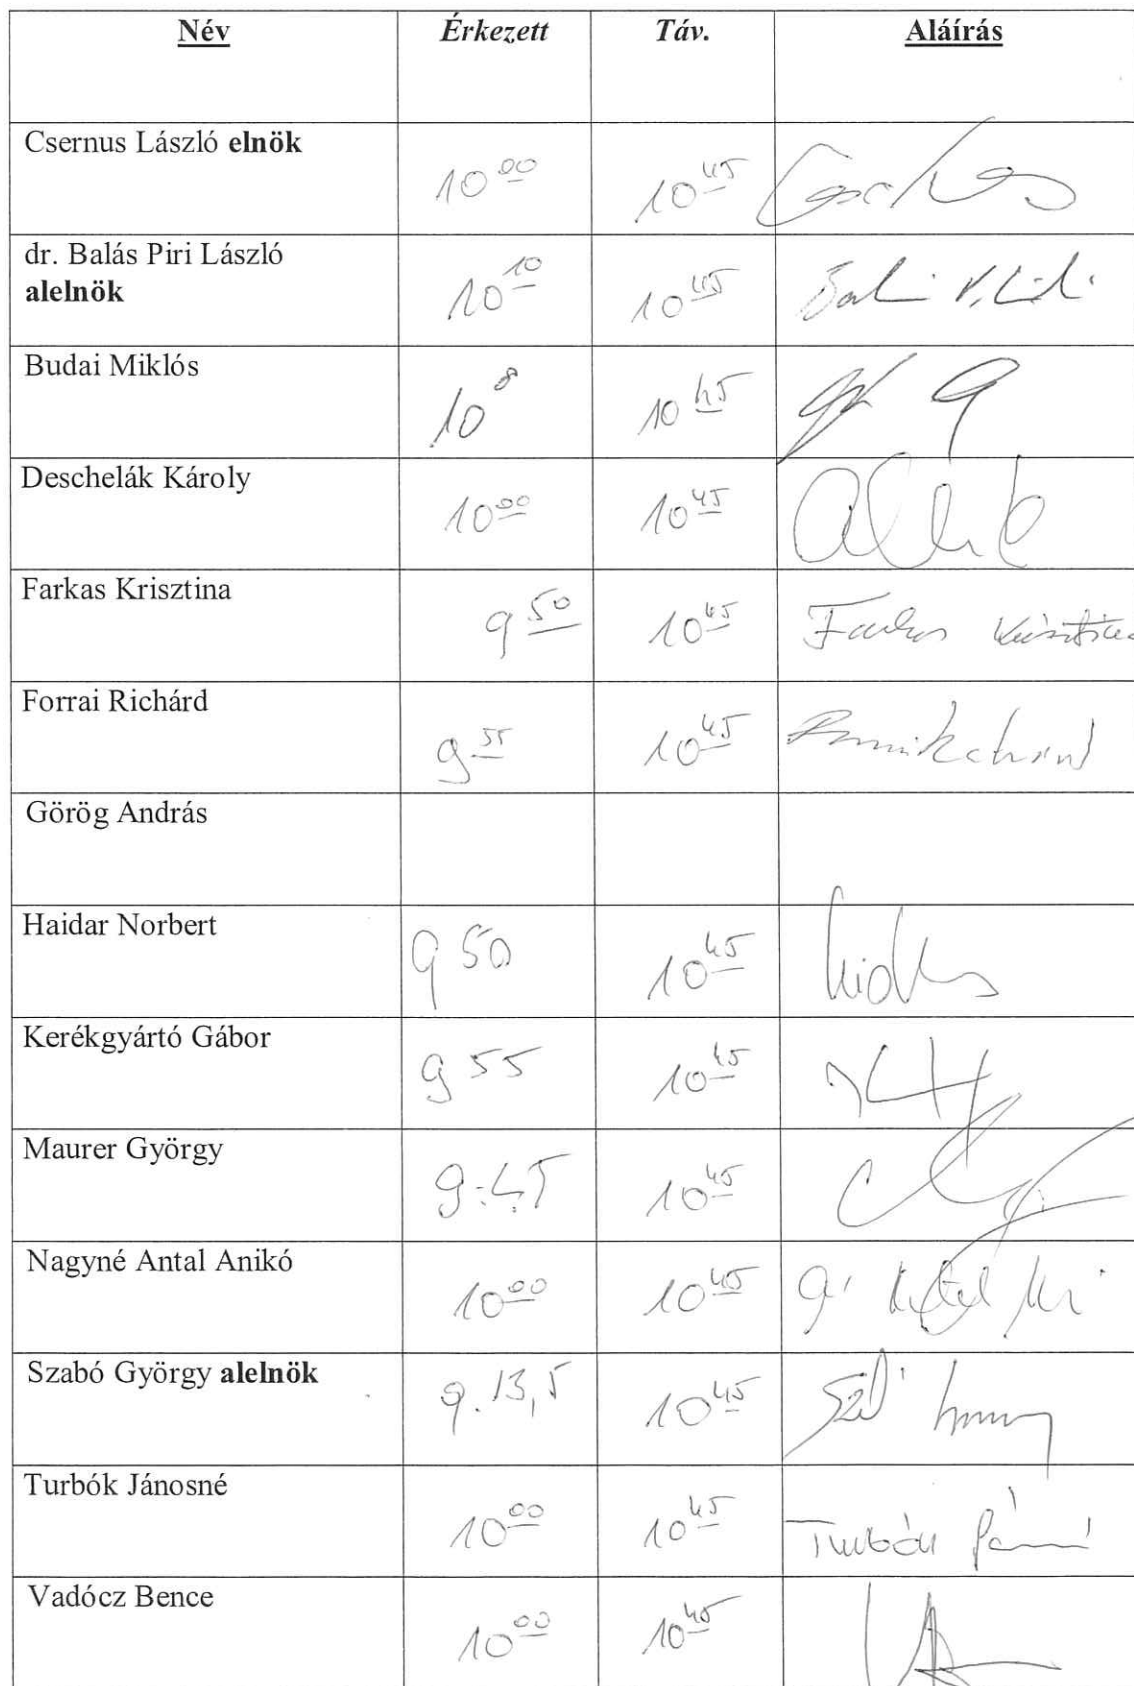 Név Érkezett Táv. Aláírás
Csernus László elnök 10 00 10 45
dr. Balás Piri László
alelnök 10 10 10 45
Budai Miklós 10 8 10 45
Deschelák Károly 10 00 10 45
Farkas Krisztina 9 50 10 45 Farkas Krisztina
Forrai Richárd 9 55 10 45
Görög András
Haidar Norbert 9 50 10 45
Kerékgyártó Gábor 9 55 10 45
Maurer György 9:45 10 45
Nagyné Antal Anikó 10 00 10 45
Szabó György alelnök 9. 10 45
Turbók Jánosné 10 00 10 45 Turbók Jánosné
Vadócz Bence 10 00 10 45